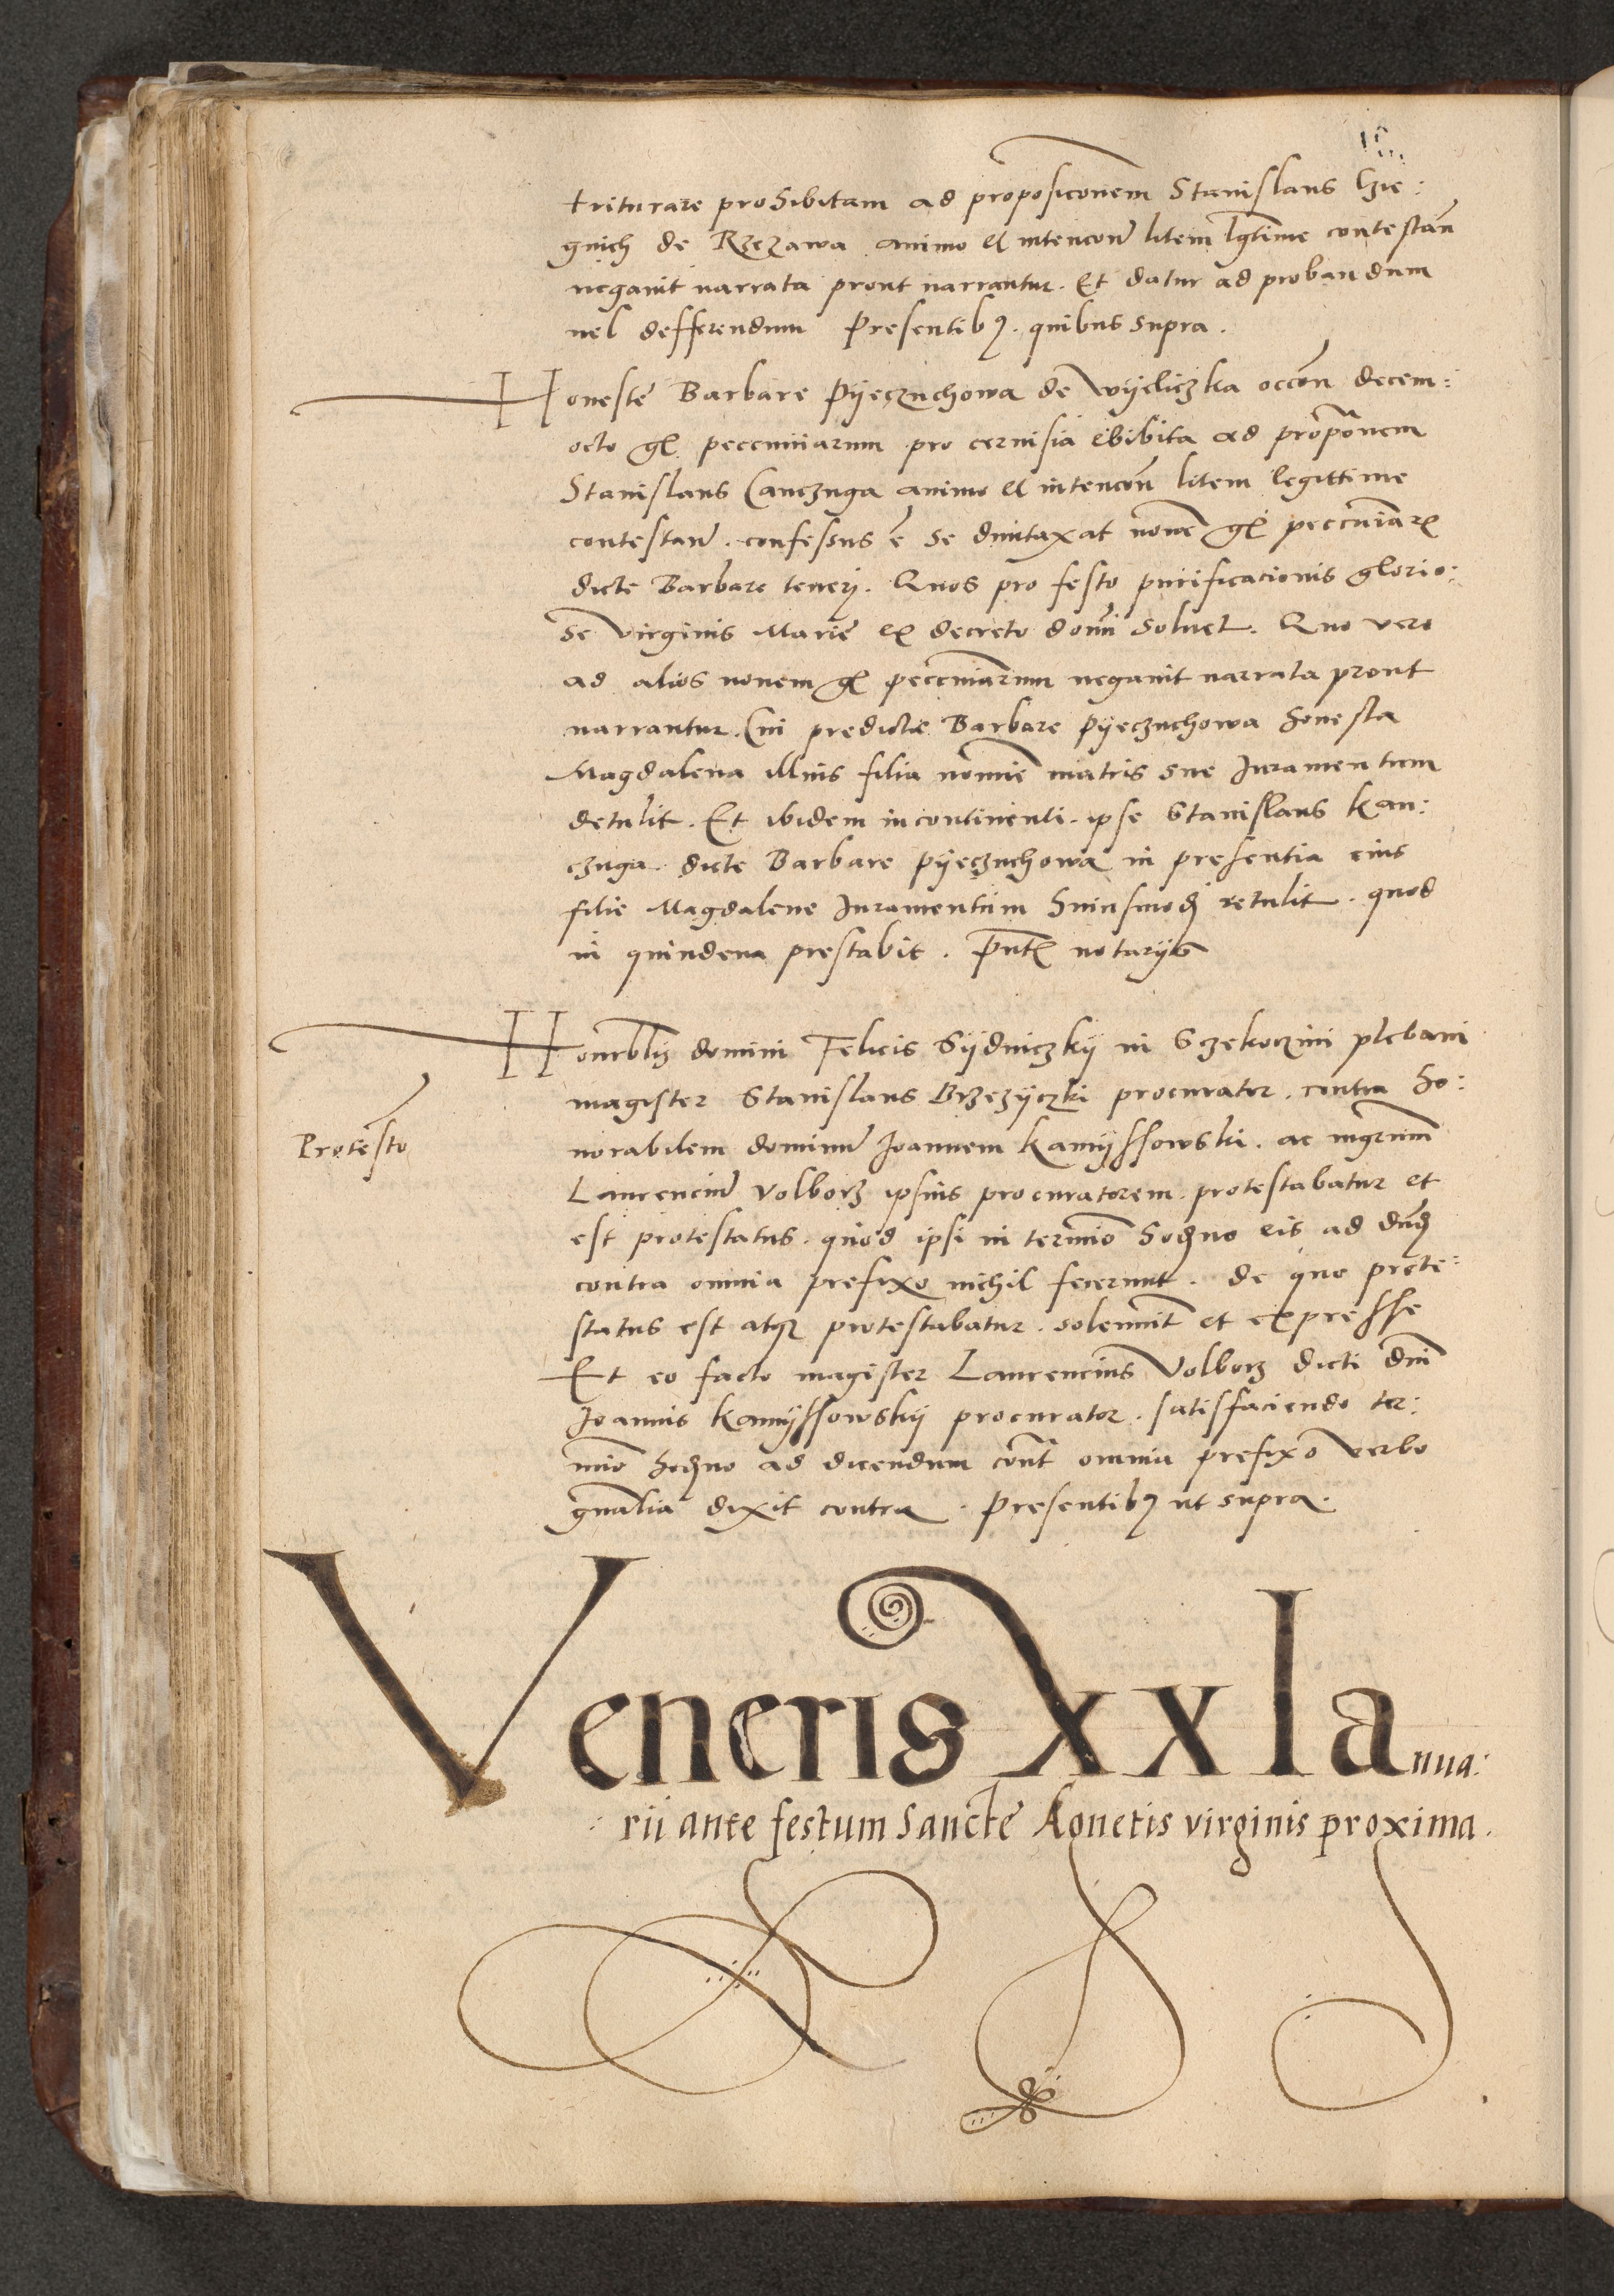 triturare prohibitam ad proposiconem Stanislaus Gzie:
gnich de Rzezawa animo et intencone litem lgtime contestan
negauit narrata prout narrantur. Et datur ad probandum
uel defferendum Presentibus. quibus supra.
Honeste Barbare Pÿeczuchowa de wÿeliczka occon decem:
octo gl pecuniarum pro ceruisia ebibita ad proponem
Stanislaus Canczuga animo et intencon litem legittime
contestan. confessus e se duntaxat noue gl pecuniarum
dicte Barbare teneri. Quos pro festo purificationis glorio:
se virginis Marie ex decreto domi soluet. Quo vero
ad alios nouem gl pecuniarum negauit narrata prout
narrantur. Cui predicte Barbare Pÿeczuchowa honesta
Magdalena illius filia nomie matris sue Iuramentum
detulit. Et ibidem incontinenti. ipse Stanislaus Kan:
czuga. dicte Barbare pÿeczuchowa in presentia eius
filie Magdalene Iuramentum huiusmodi retulit. quod
in quindena prestabit. Pntibus notarÿs
Honrblis domini Felicis Sÿdniczkÿ in Sczekoczini plebani
magister Stanislaus Brzezÿczki procurator. contra ho:
Protesto
norabilem dominum Joannem Kamÿssowski. ac mgrum
Laurencium Volborz ipsius procuratorem. protestabatur et
est protestatus. quod ipsi in termino hodierno eis ad dicendum
contra omnia prefixo nichil fecerunt. de quo prote:
status est atque protestabatur. solenniter et expresse
Et eo facto magister Laurencius Volborz dicti dni
Joannis Kamÿssowskÿ procurator. satisfaciendo ter:
mino hodierno ad dicendum cont omnia prefixo verbo
gnalia dixit contra. Presentibus ut supra.
Veneris XX Ianua:
rii ante festum Sancte Agnetis virginis proxima.